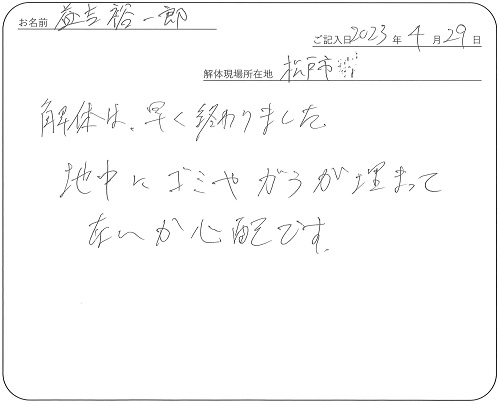 お名前 益吉裕一郎
ご記入日2023年4月29日
解体現場所在地 松戸市
解体は、早く終わりました
地中にゴミやガラが埋まって
ないか心配です。